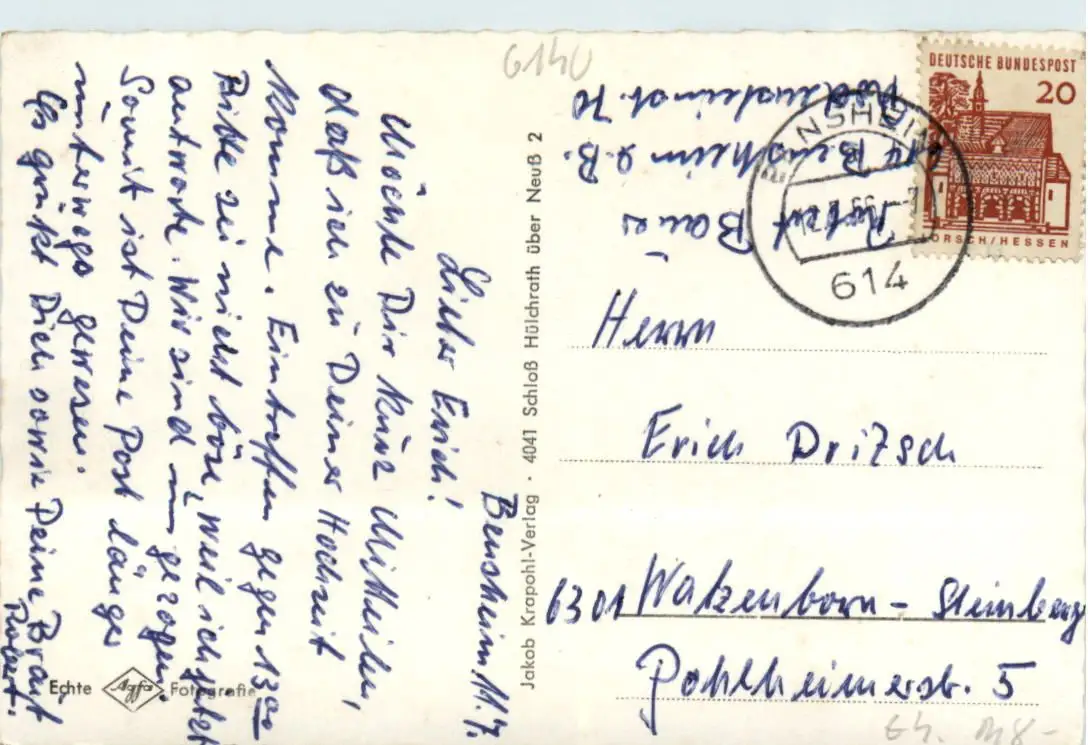 Bensheim 11.7.
Lieber Erich!
Möchte Dir kurz Mitteilen,
daß ich zu Deiner Hochzeit
komme. Eintreffen gegen 13 00
Bitte sei nicht böse, weil ich jetzt
antworte. Wir sind umgezogen.
Somit ist Deine Post länger
unterwegs gewesen.
Es grüßt Dich sowie Deine Braut
Robert.
Echte Agfa Fotografie
Jakob Krapohl-Verlag · 4041 Schloß Hülchrath über Neuß 2
6140
Robert Bauer
614 Bensheim a.B.
70
DEUTSCHE BUNDESPOST
20
LORSCH/HESSEN
BENSHEIM
614
Herrn
Erich Dritsch
6301 Watzenborn-Steinberg
Pohlheimerstr. 5